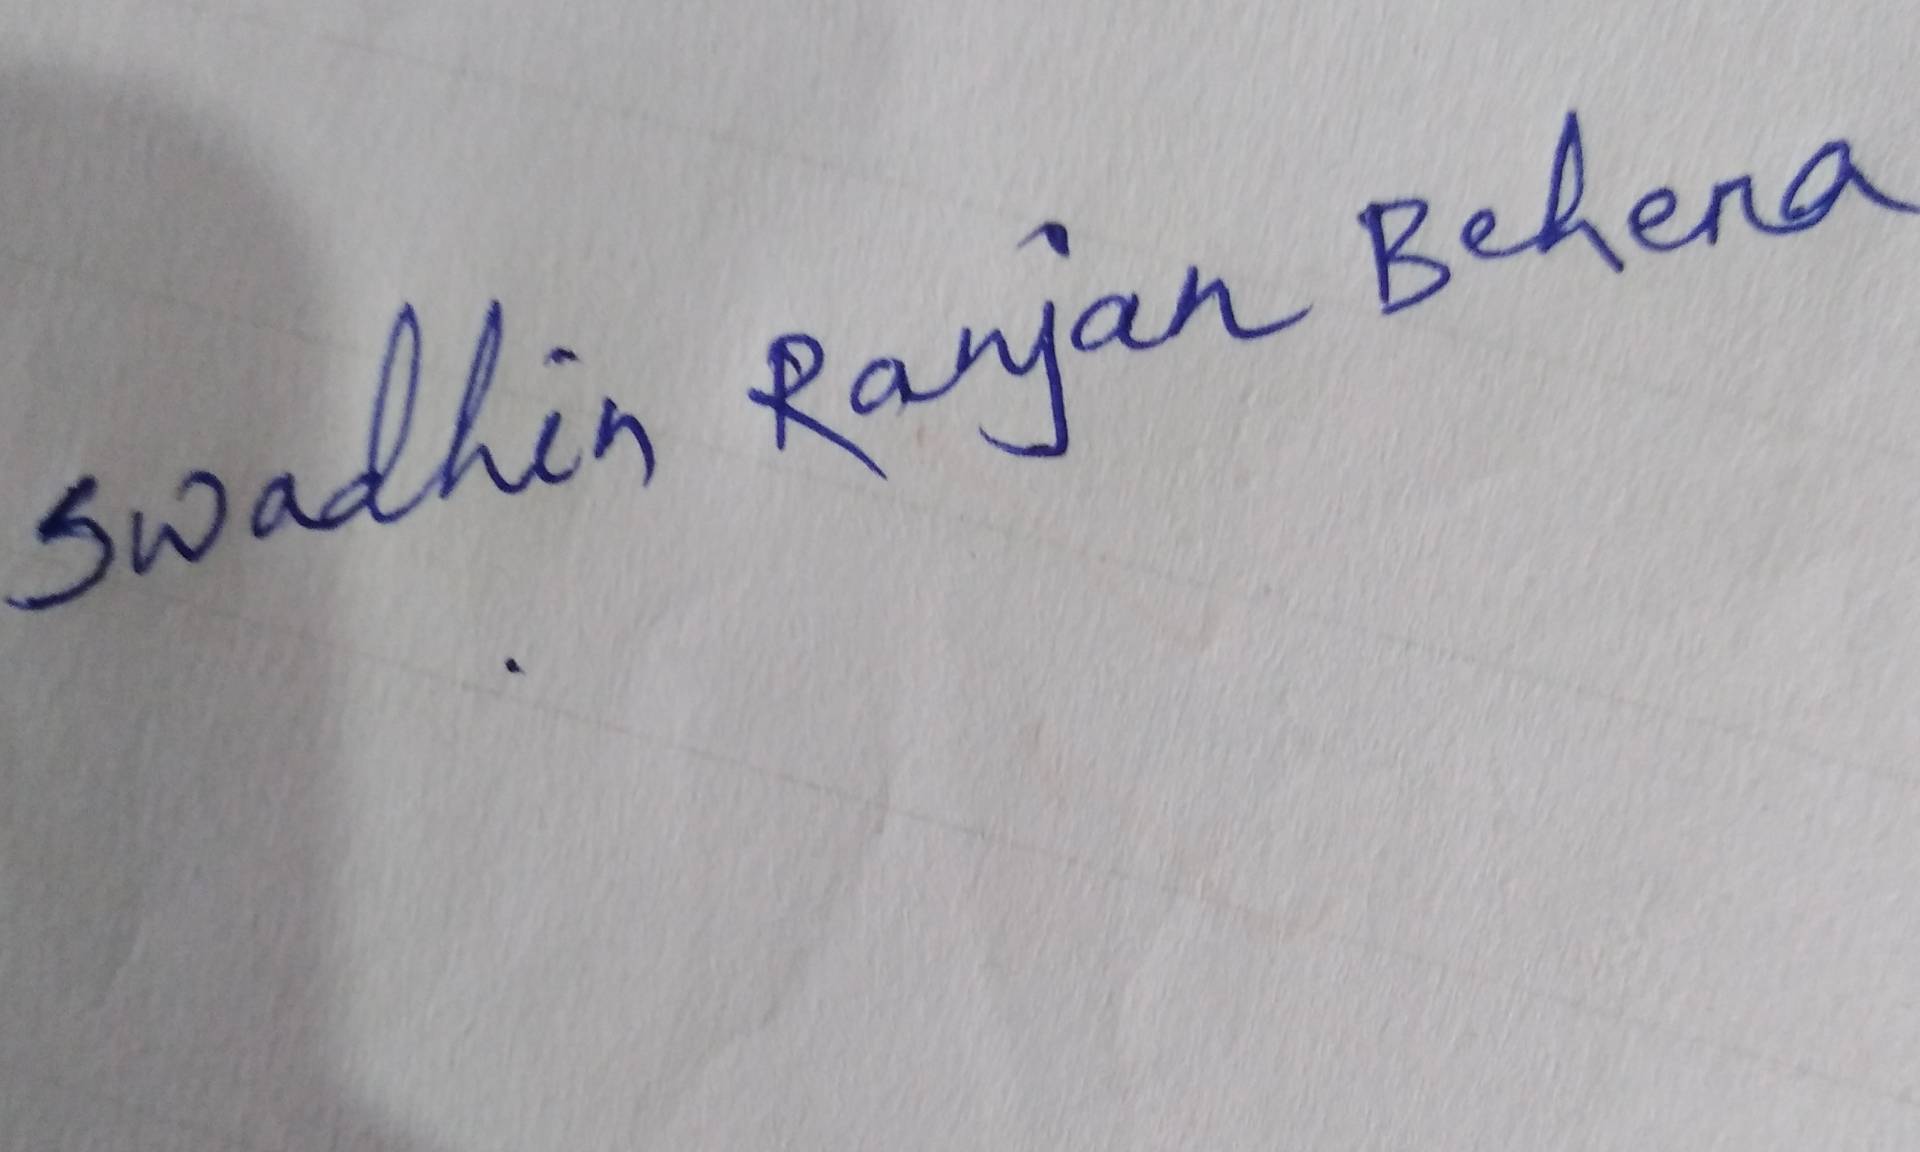 Swadhin Ranjan Behera